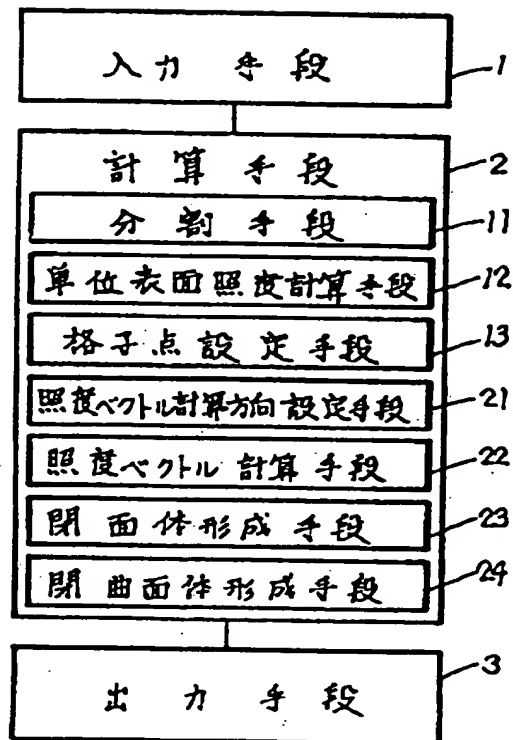 入力手段 1
計算手段 2
分割手段 11
単位表面照度計算手段 12
格子点設定手段 13
照度ベクトル計算方向設定手段 21
照度ベクトル計算手段 22
閉面体形成手段 23
閉曲面体形成手段 24
出力手段 3